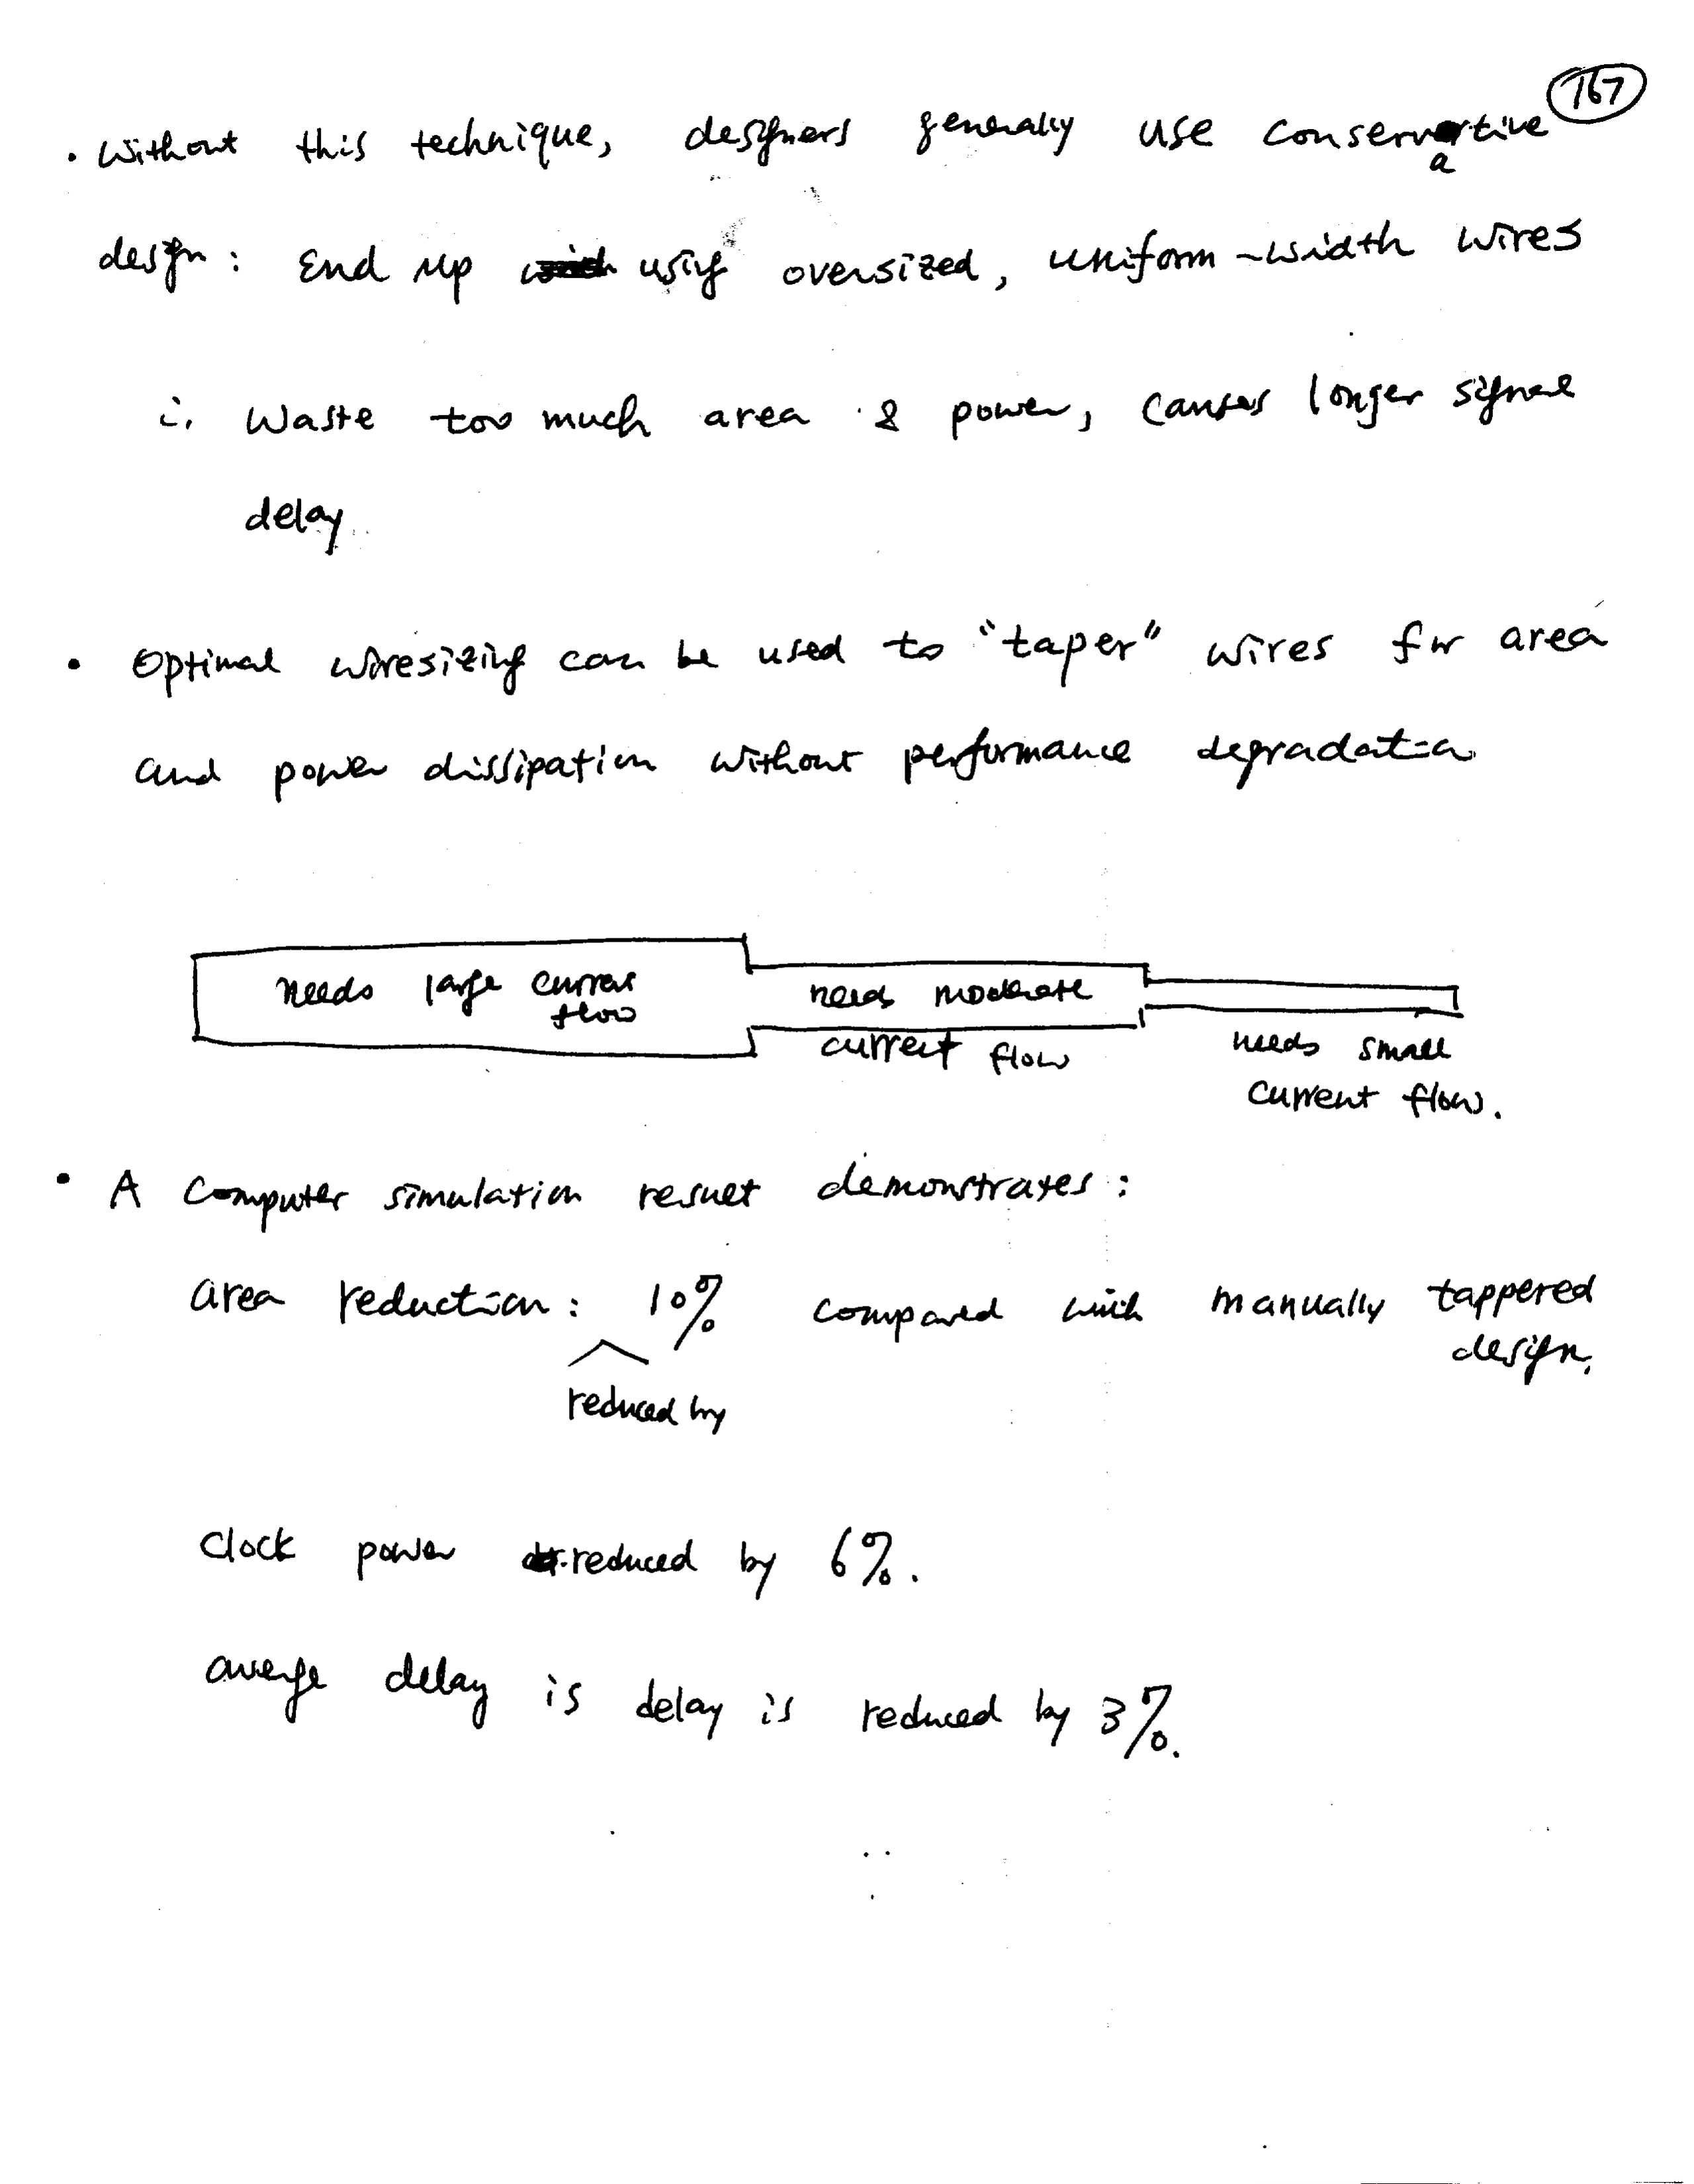 167
• Without this technique, designers generally use conservative
design : End up using oversized, uniform-width wires
∴ Waste too much area & power, causes longer signal
delay
• Optimal wiresizing can be used to "taper" wires for area
and power dissipation without performance degradation
needs large current
flow
needs moderate
current flow
needs small
current flow.
• A computer simulation result demonstrates :
area reduction : 10% compared with manually tappered
design.
reduced by
Clock power reduced by 6%.
average delay is delay is reduced by 3%.